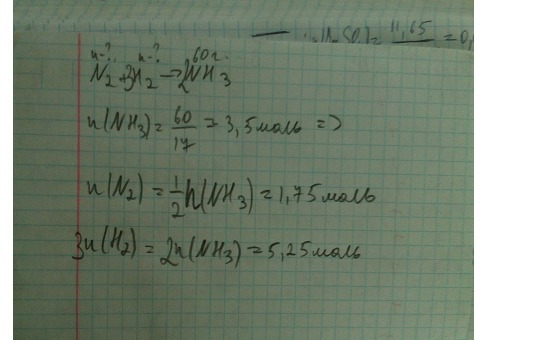 11,65
= 0,
n-? n-? 60г.
N₂+3H₂→2NH₃
n(NH₃)=60/17=3,5моль =>
n(N₂)=1/2n(NH₃)=1,75моль
3n(H₂)=2n(NH₃)=5,25моль